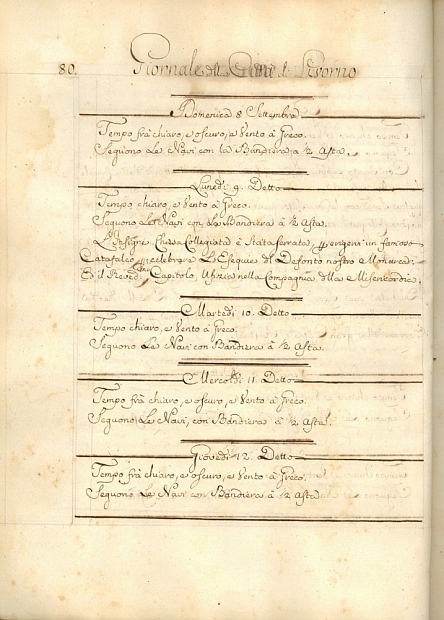 80. Giornale del Città di Livorno
Domenica 8 Settembra
Tempo frà chiaro, e oscuro, e Vento à Greco.
Seguono Le Navi con la Bandiera a ½ Asta.
Lunedì 9. Detto
Tempo chiaro, e Vento à Greco.
Seguono Le Navi con La Bandiera à ½ Asta.
L'Insigne Chiesa Collegiata è Stata serrata p erigervi un famoso
Catafalco p celebrare L'Esequie del Defonto nostro Monarca:
Ed il Capitolo, Ufizia nella Compagnia dlla Misericordia.
Martedì 10. Detto
Tempo chiaro, e Vento à Greco.
Seguono Le Navi con Bandiera à ½ Asta.
Mercoldì 11. Detto
Tempo frà chiaro, e oscuro, e Vento à Greco.
Seguono Le Navi, con Bandiera à ½ Asta.
Giovedì 12. Detto
Tempo frà chiaro, e oscuro, e Vento à Greco.
Seguono Le Navi con Bandiera à ½ Asta